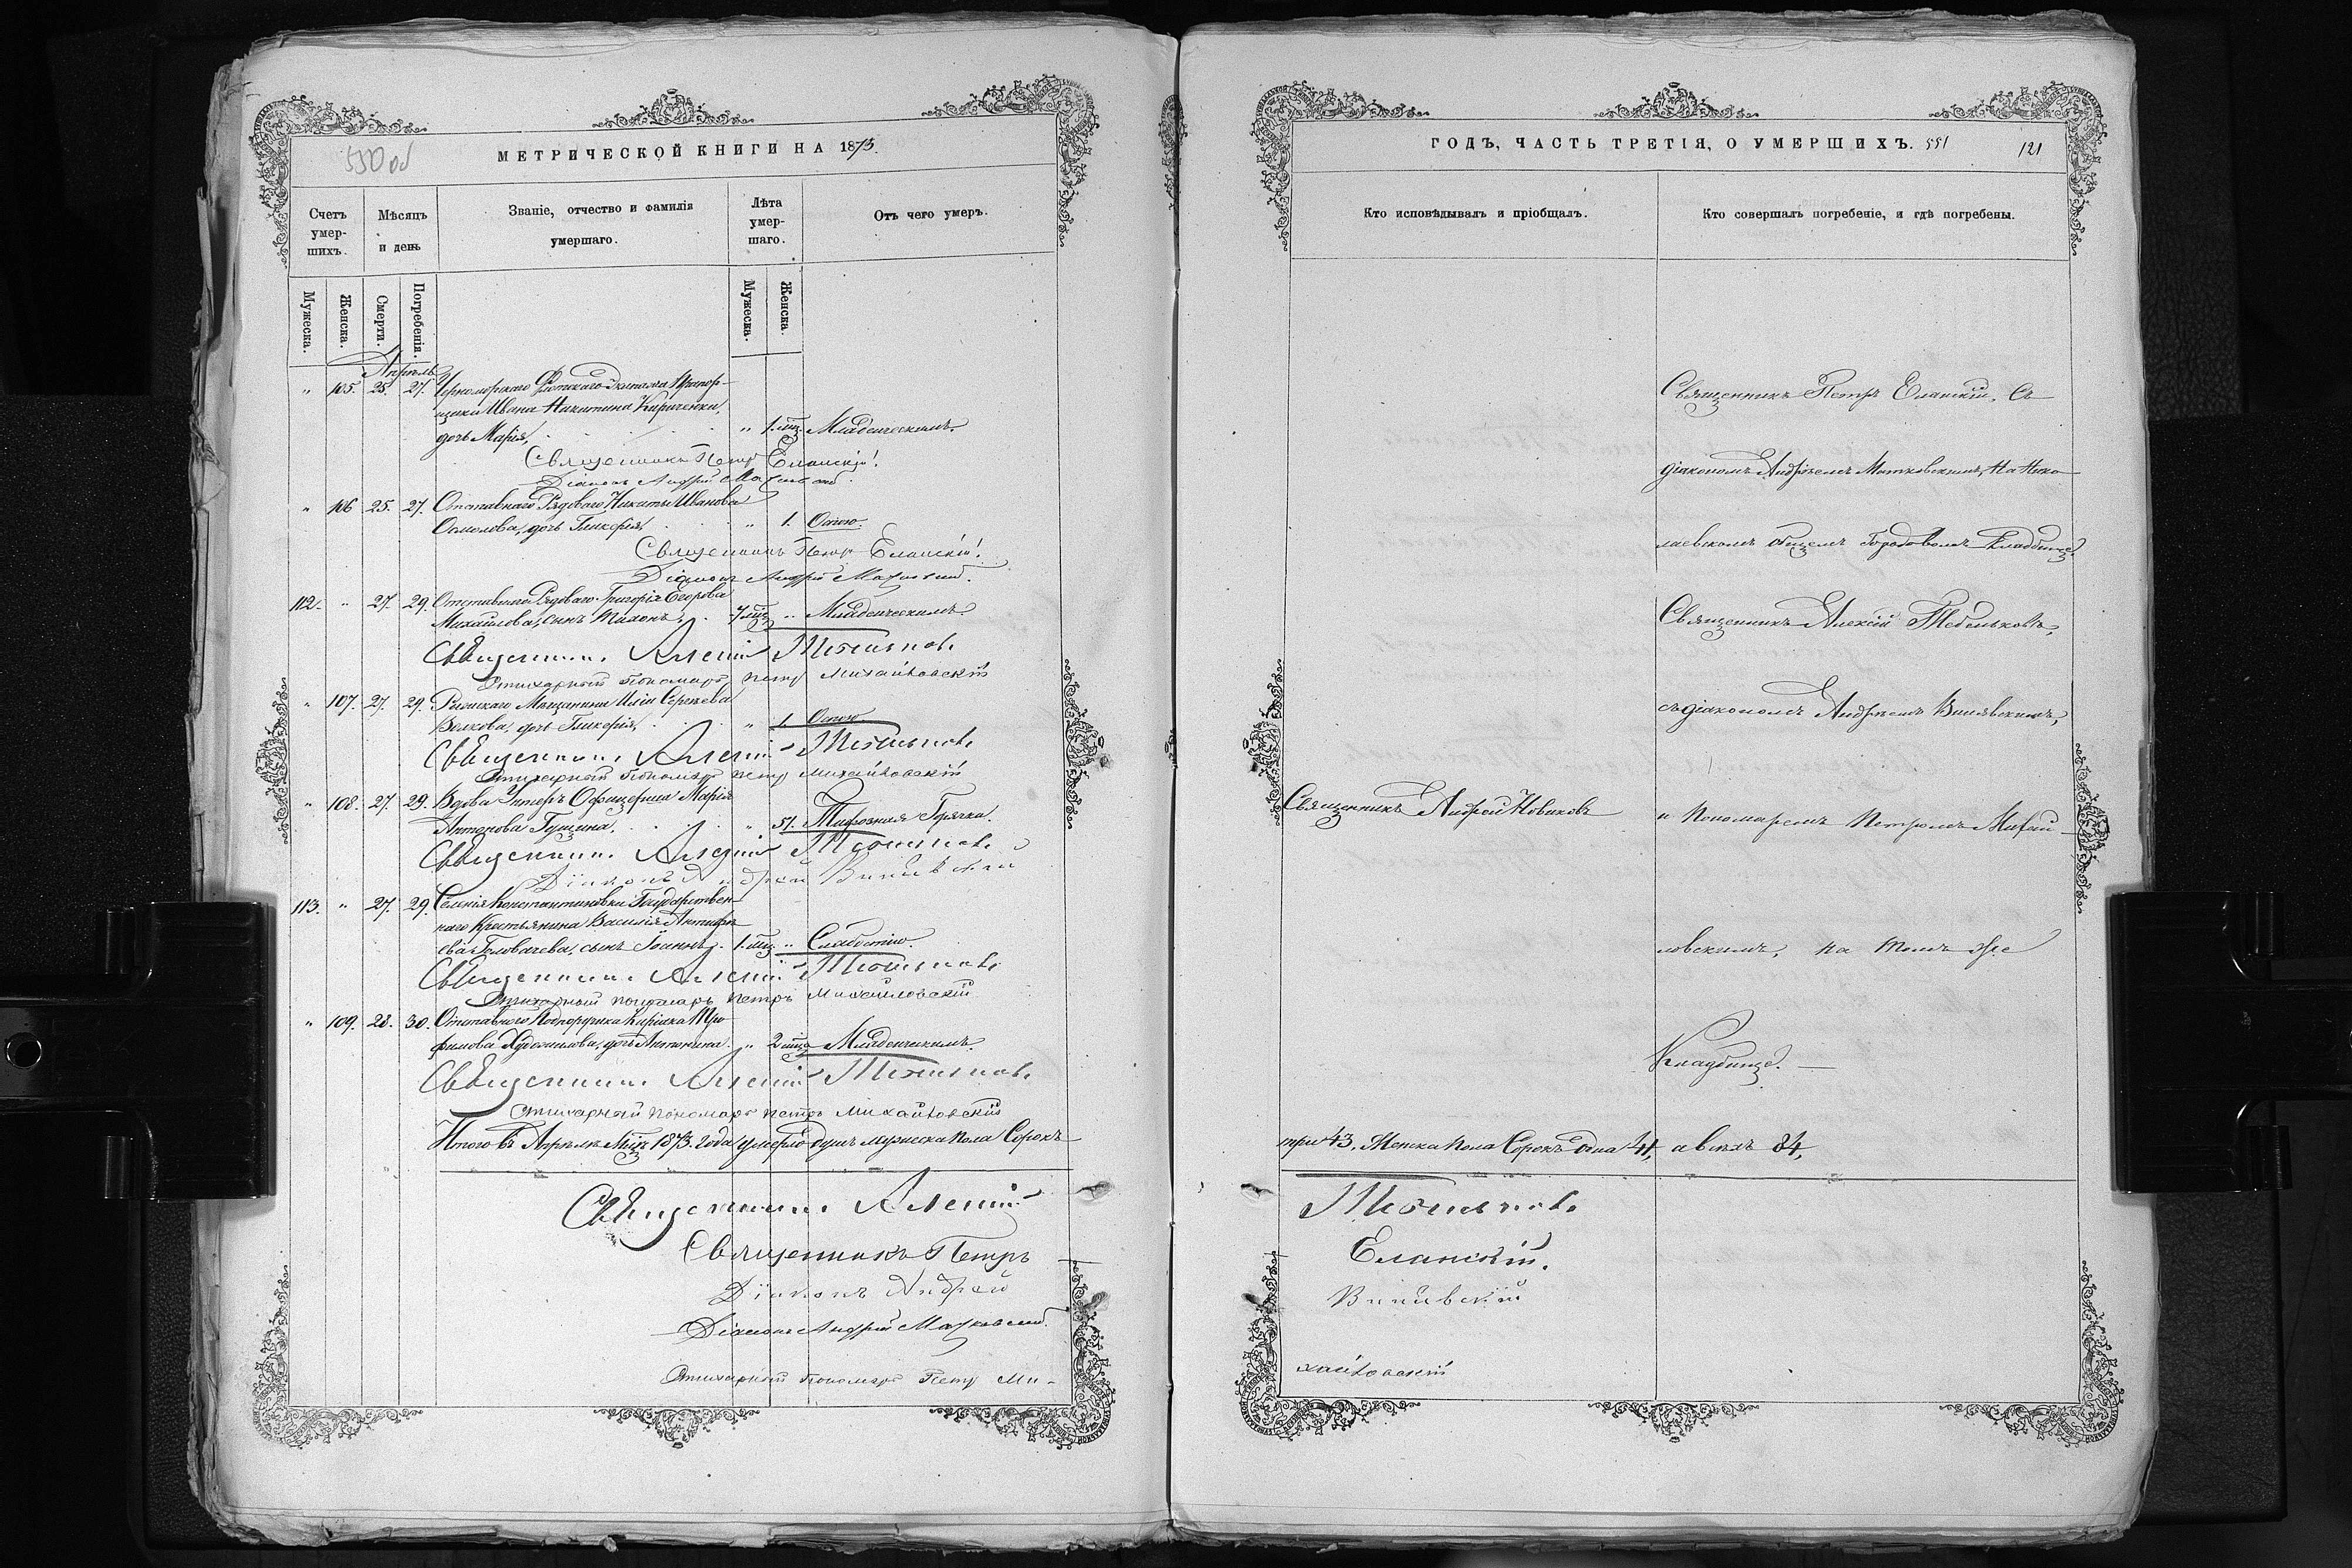 550 об
МЕТРИЧЕСКОЙ КНИГИ НА 1873.
Счетъ умер-шихъ.
Мѣсяцъ и день
Званіе, отчество и фамилія умершаго.
Лѣта умер-шаго.
Отъ чего умеръ.
Мужеска. Женска. Смерти. Погребенія. Мужеска. Женска.
Апрѣль
" 105. 25. 27. Черноморскаго Флотскаго Экипажа Прапор-
щика Ивана Никитина Кириченки,
дочь Марія, " 1. мц. Младенческимъ.
Священникъ Петръ Еланскій.
Діаконъ Андрей
" 106 25. 27. Отставнаго Рядоваго Никиты Иванова
Осмолова, дочь Гликерія, " 1. Оспою.
Священникъ Петръ Еланскій.
Діаконъ Андрей
112. " 27. 29. Отставнаго Рядоваго Григорія Егорова
Михайлова, сынъ Тихонъ, 7 мц. " Младенческимъ.
Священникъ Алексій
Стихарный Пономарь Петръ Михайловскій
" 107. 27. 29. Мѣщанина Иліи Сергѣева
Волкова, дочь Гликерія, " 1. Оспою.
Священникъ Алексій
Стихарный Пономарь Петръ Михайловскій
" 108. 27. 29. Вдова Унтеръ Офицерша Марія
Антонова Гущина, " 51. Тифозная Горячка.
Священникъ Алексій
Діаконъ Андрей
113. " 27. 29. Селенія Константиновки Государствен-
наго Крестьянина Василія
ева Головачева, сынъ Іоаннъ, 1. мц. " Слабостію.
Священникъ Алексій
Стихарный пономарь Петръ Михайловскій
" 109. 28. 30. Отставнаго Подпоручика Киріака Тро-
фимова дочь Антонина. " 2 мца Младенческимъ.
Священникъ Алексій
Стихарный пономарь Петръ Михайловскій
Итого въ Апрѣлѣ Мцѣ 1873. года умерло душъ мужеска пола Сорокъ
Священникъ Алексій
Священникъ Петръ
Діаконъ Андрей
Діаконъ Андрей
Стихарный Пономарь Петръ Ми-
ГОДЪ, ЧАСТЬ ТРЕТІЯ, О УМЕРШИХЪ. 551 121
Кто исповѣдывалъ и пріобщалъ.
Кто совершалъ погребеніе, и гдѣ погребены.
Священникъ Петръ Еланскій, съ
діакономъ Андреемъ На Нико-
лаевскомъ общемъ Городовомъ Кладбищѣ.
Священникъ Алексій
съ діакономъ Андреемъ
Священникъ Андрей Новиковъ
и Пономаремъ Петромъ Михай-
ловскимъ, на томъ же
Кладбищѣ.
три 43, Женска пола Сорокъ одна 41, а всѣхъ 84,
Еланскій.
хайловскій